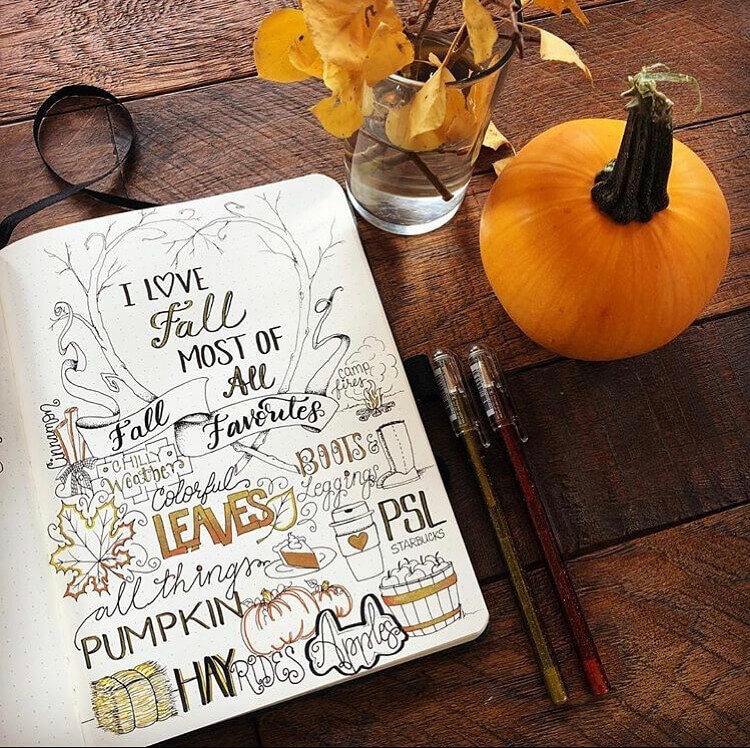 I LOVE
Fall
MOST OF
All
Fall Favorites
camp
fires
Cinnamon
CHILLY
Weather
BOOTS &
Leggings
Colorful
LEAVES
PSL
STARBUCKS
all things
PUMPKIN
HAYRIDES
Apples